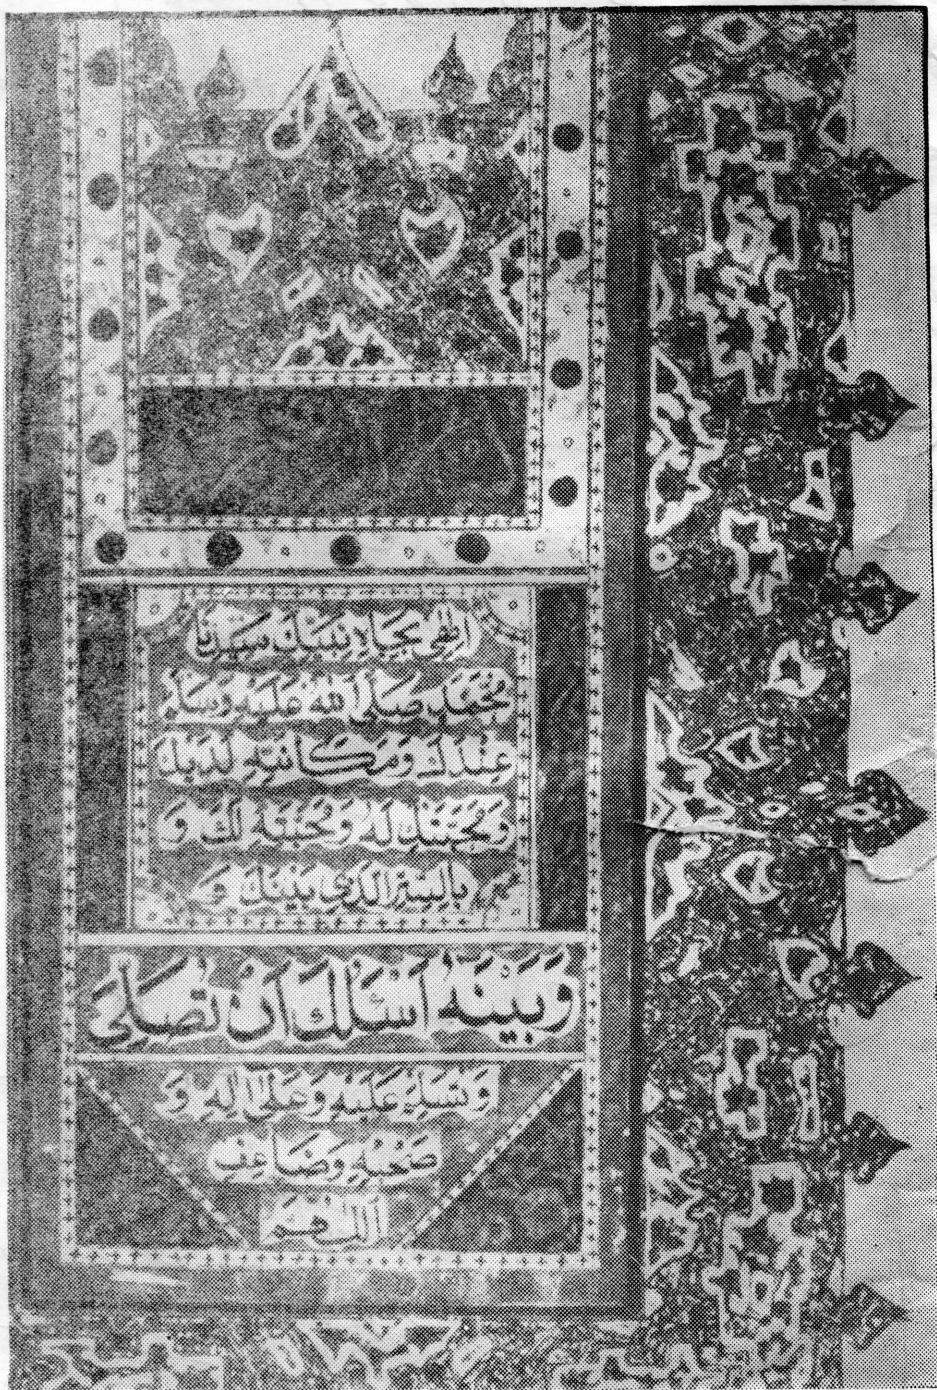 اِلٰهِي بِجَاهِ نَبِيِّكَ سَيِّدِنَا
مُحَمَّدٍ صَلَّى اللهُ عَلَيْهِ وَسَلَّمَ
عِنْدَكَ وَمَكَانَتِهِ لَدَيْكَ
وَمَحَبَّتِكَ لَهُ وَمَحَبَّتِهِ لَكَ وَ
بِالسِّرِّ الَّذِي بَيْنَكَ وَ
وَبَيْنَهُ اَسْئَلُكَ اَنْ تُصَلِّيَ
وَتُسَلِّمَ عَلَيْهِ وَعَلَى اٰلِهِ وَ
صَحْبِهِ وَضَاعِفِ
اَللّٰهُمَّ